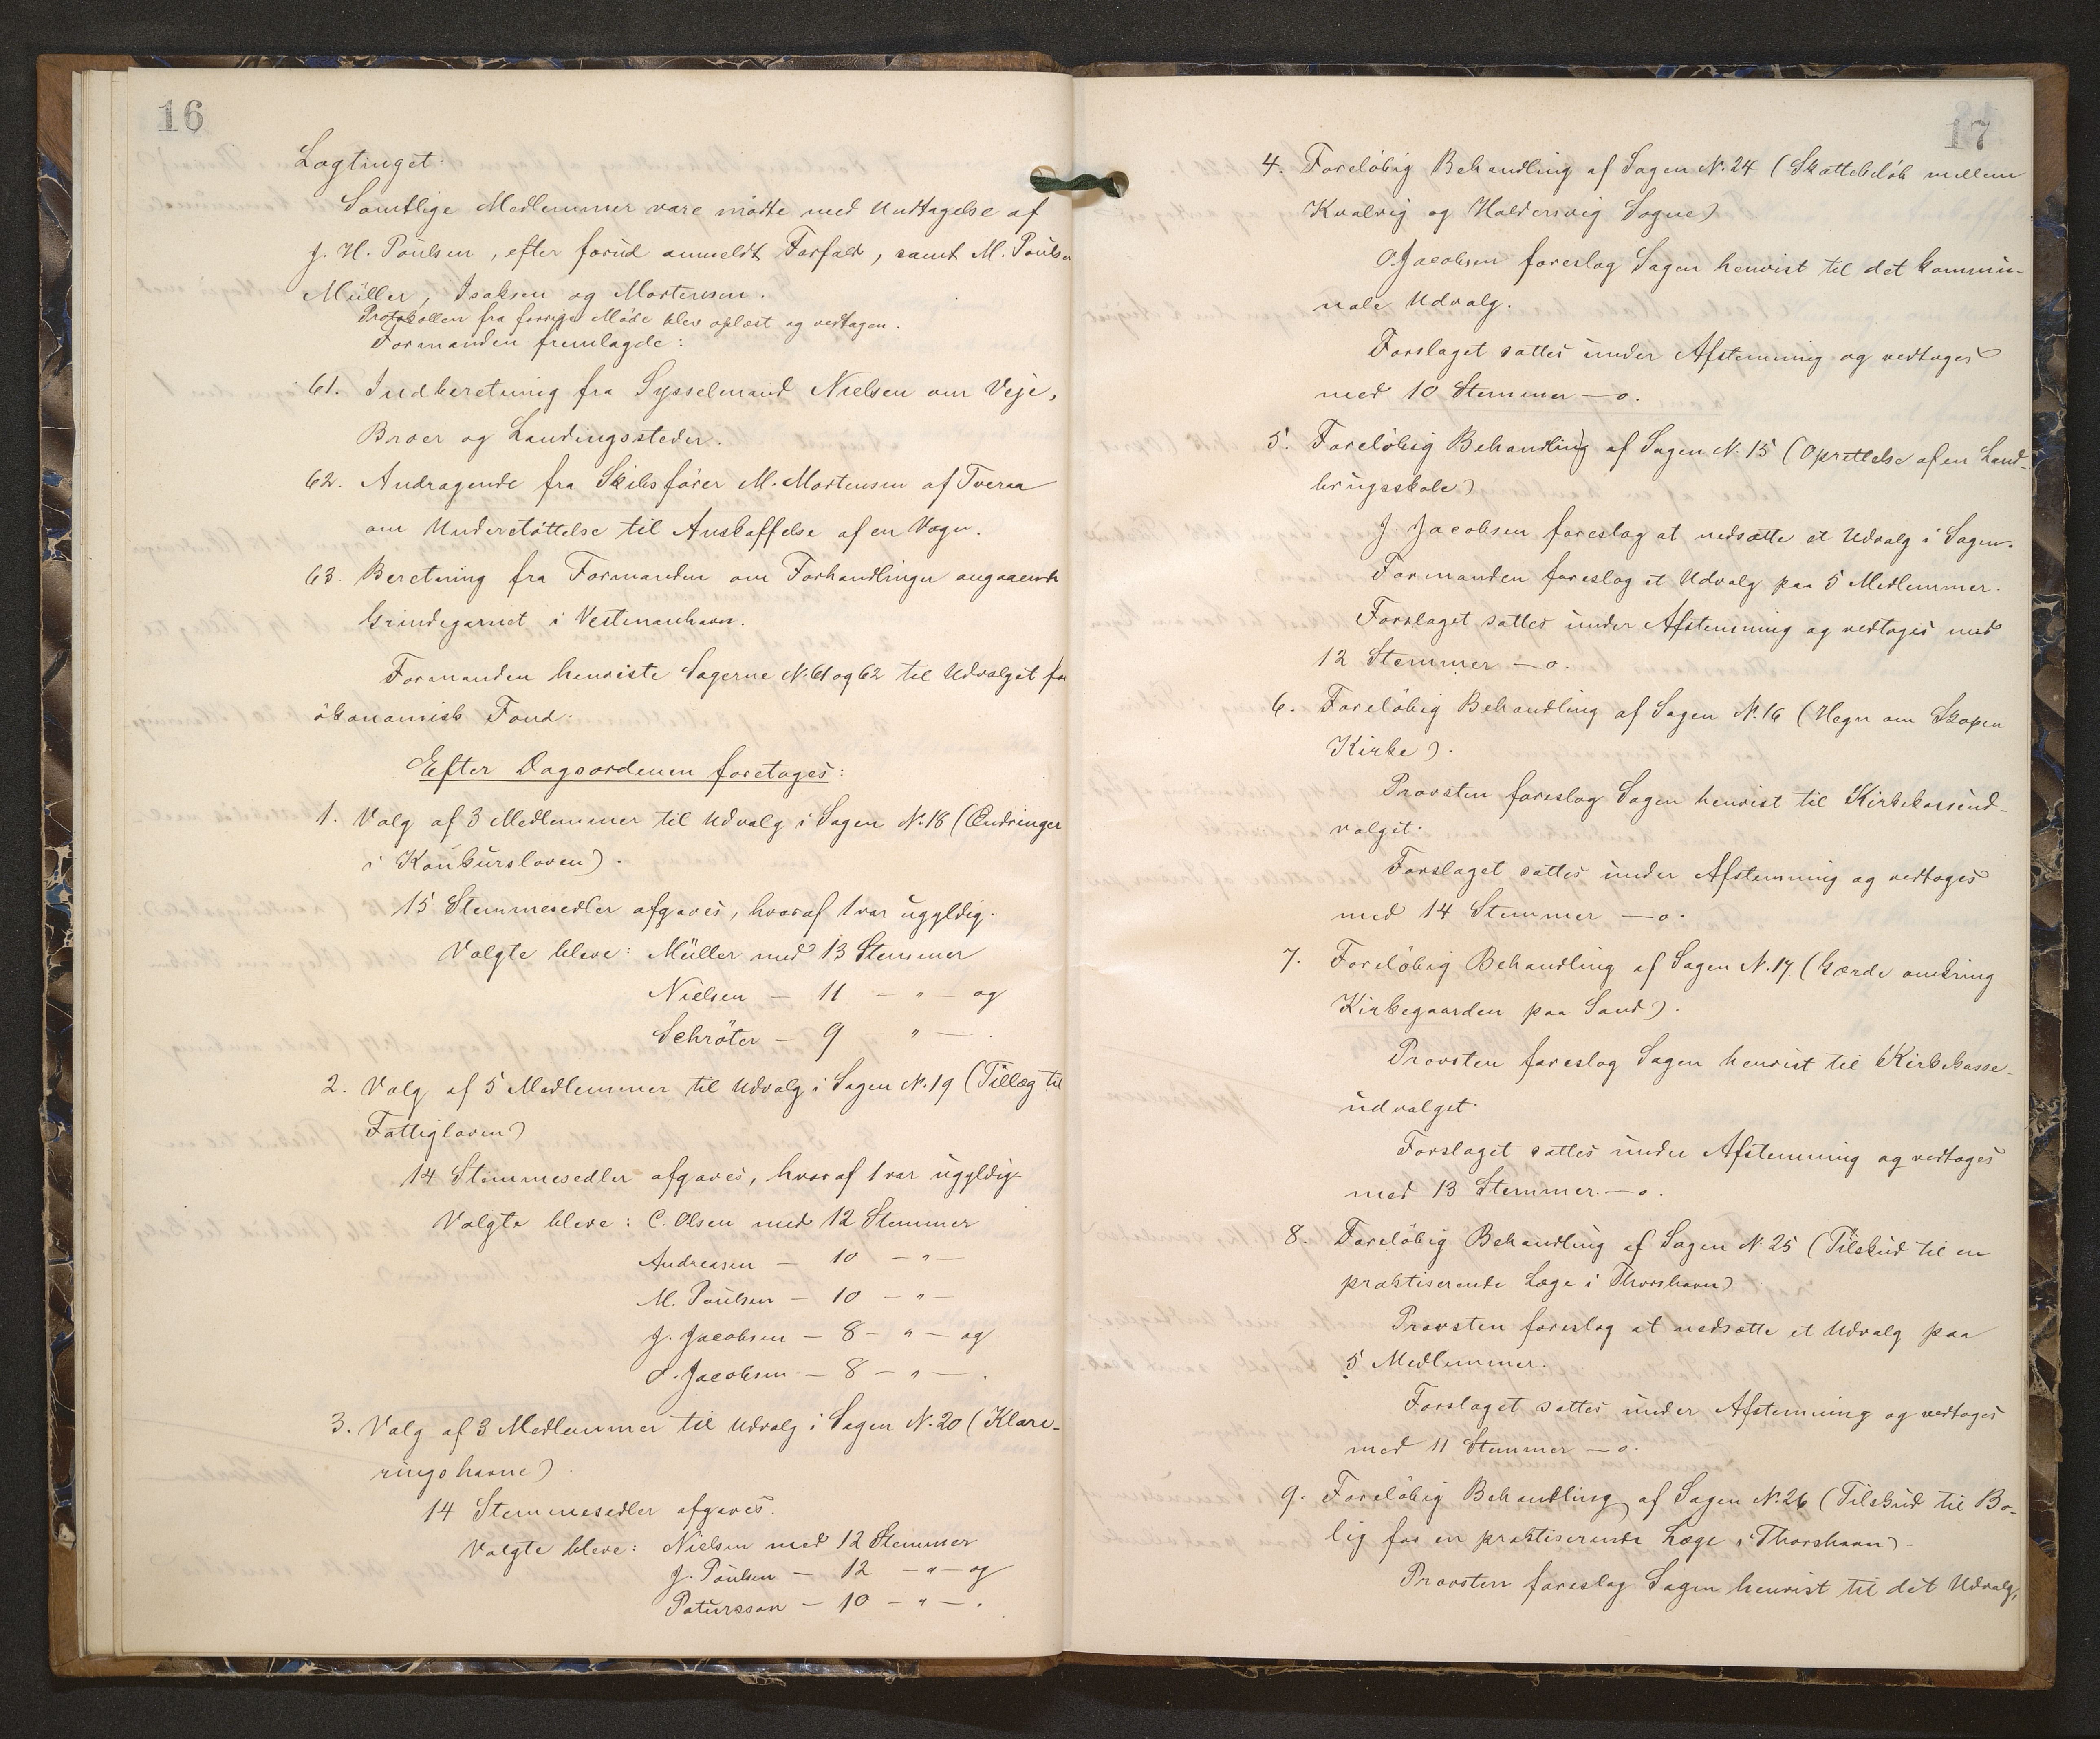 16
Lagtinget.
Samtlige Medlemmer vare mødte med Undtagelse af
J. H. Poulsen, efter forud anmeldt Forfald, samt M. Poulsen
Müller, Isaksen og Mortensen.
Protokollen fra forrige Møde blev oplæst og vedtagen.
Formanden fremlagde:
61. Indberetning fra Sysselmand Nielsen om Veje,
Broer og Landingssteder.
62. Andragende fra Skibsfører M. Mortensen af Tveraa
om Understøttelse til Anskaffelse af en Vogn.
63. Beretning fra Formanden om Forhandlinger angaaende
Grindegarnet i Vestmanhavn.
Formanden henviste Sagerne N. 61 og 62 til Udvalget for
økonomisk Fond.
Efter Dagsordenen foretages:
1. Valg af 3 Medlemmer til Udvalg i Sagen N. 18 (Ændringer
i Konkursloven).
15 Stemmesedler afgaves, hvoraf 1 var ugyldig.
Valgte bleve: Müller med 13 Stemmer
Nielsen — 11 — " — og
Schrøter — 9 — " —
2. Valg af 5 Medlemmer til Udvalg i Sagen N. 19 (Tillæg til
Fattigloven)
14 Stemmesedler afgaves, hvoraf 1 var ugyldig.
Valgte bleve: C. Olsen med 12 Stemmer
Andreasen — 10 — " —
M. Poulsen — 10 — " —
J. Jacobsen — 8 — " — og
O. Jacobsen — 8 — " — .
3. Valg af 3 Medlemmer til Udvalg i Sagen N. 20 (Klare-
ringshavne)
14 Stemmesedler afgaves.
Valgte bleve: Nielsen med 12 Stemmer
J. Poulsen — 12 — " — og
Patursson — 10 — " — .
17
4. Foreløbig Behandling af Sagen N. 24 (Skattebeløb mellem
Kvalvig og Haldersvig Sogne)
O. Jacobsen foreslog Sagen henvist til det kommu-
nale Udvalg.
Forslaget sattes under Afstemning og vedtoges
med 10 Stemmer — o.
5. Foreløbig Behandling af Sagen N. 15 (Oprettelse af en Land-
brugsskole)
J. Jacobsen foreslog at nedsætte et Udvalg i Sagen.
Formanden foreslog et Udvalg paa 5 Medlemmer.
Forslaget sattes under Afstemning og vedtoges med
12 Stemmer — o.
6. Foreløbig Behandling af Sagen N. 16 (Hegn om Skopen
Kirke).
Provsten foreslog Sagen henvist til Kirkekasseud-
valget.
Forslaget sattes under Afstemning og vedtoges
med 14 Stemmer — o.
7. Foreløbig Behandling af Sagen N. 17. (Gærde omkring
Kirkegaarden paa Sand).
Provsten foreslog Sagen henvist til Kirkekasse-
udvalget.
Forslaget sattes under Afstemning og vedtoges
med 13 Stemmer — o.
8. Foreløbig Behandling af Sagen N. 25 (Tilskud til en
praktiserende Læge i Thorshavn)
Provsten foreslog at nedsætte et Udvalg paa
5 Medlemmer.
Forslaget sattes under Afstemning og vedtoges
med 11 Stemmer — o.
9. Foreløbig Behandling af Sagen N. 26 (Tilskud til Bo-
lig for en praktiserende Læge i Thorshavn).
Provsten foreslog Sagen henvist til det Udvalg,